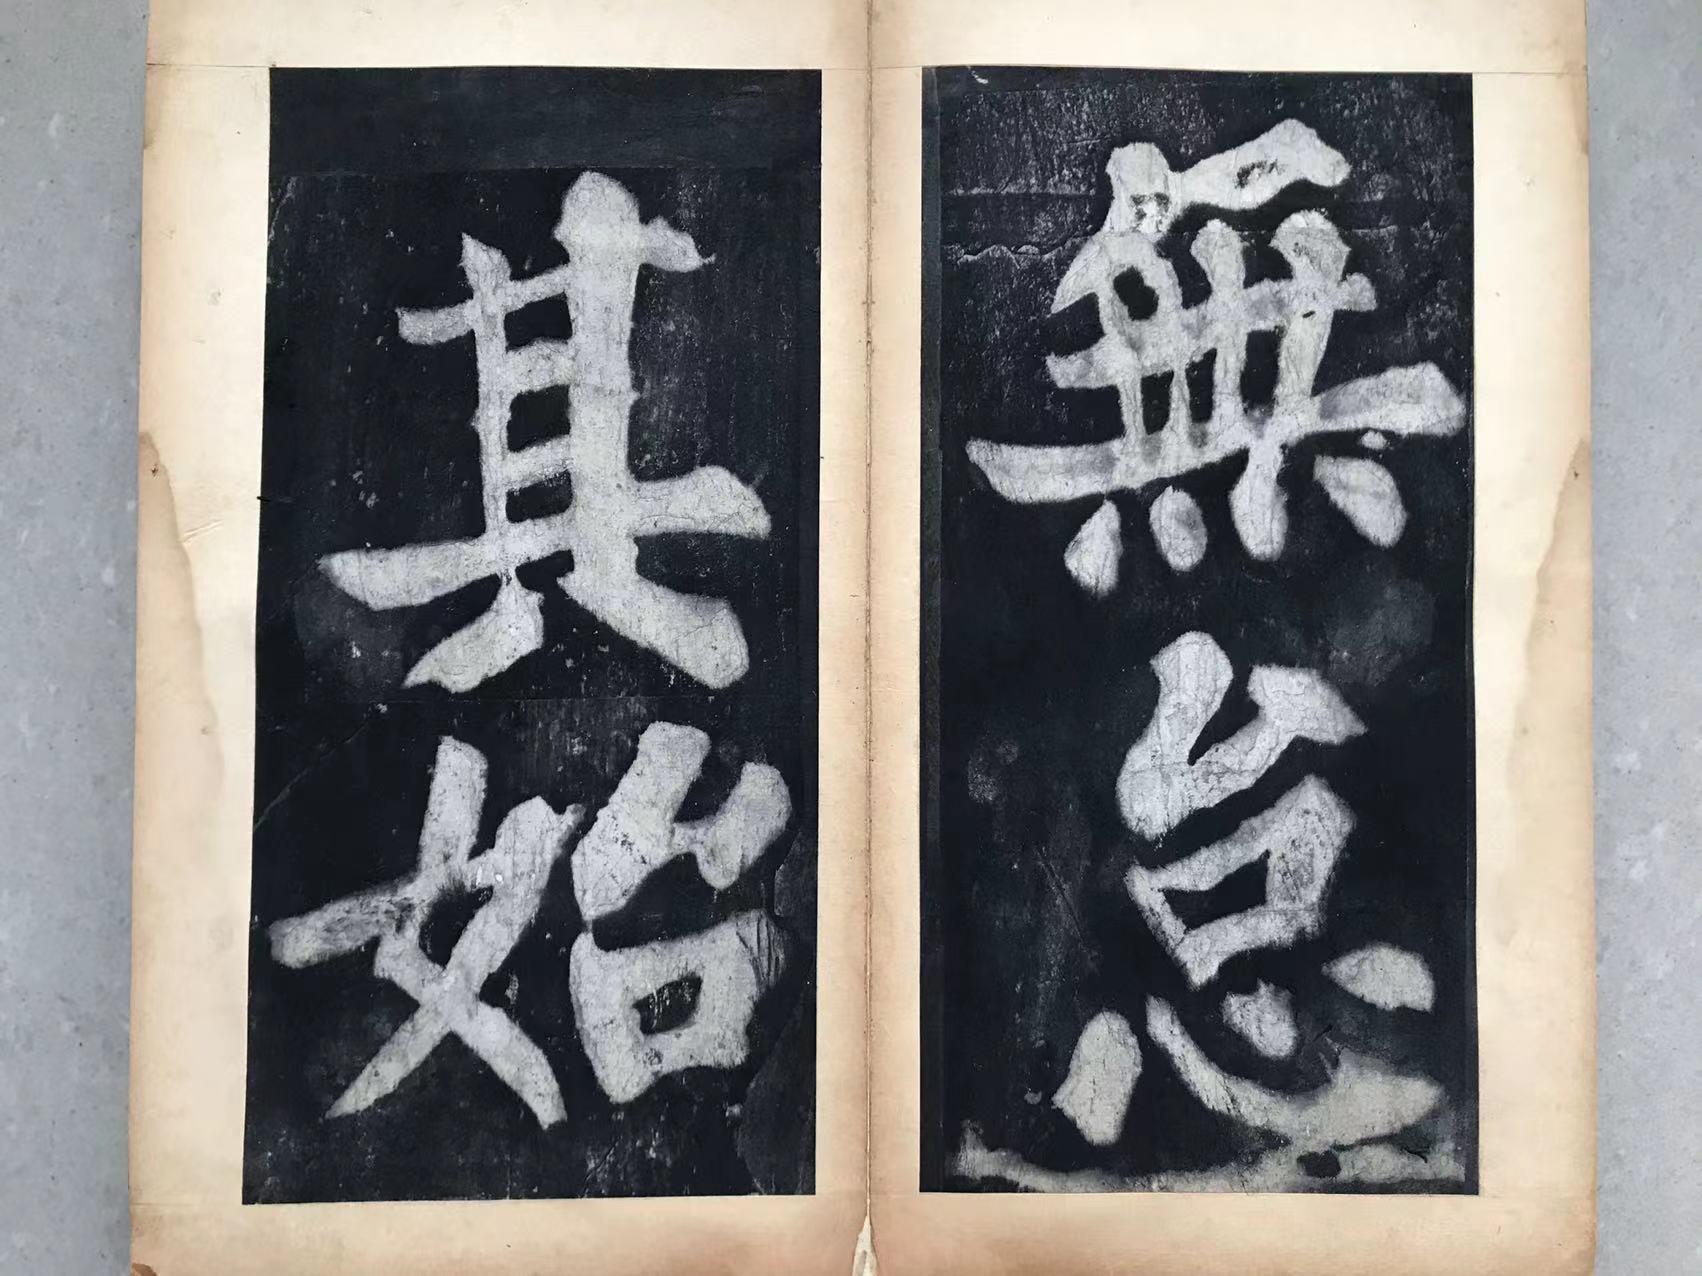 無怠
其始